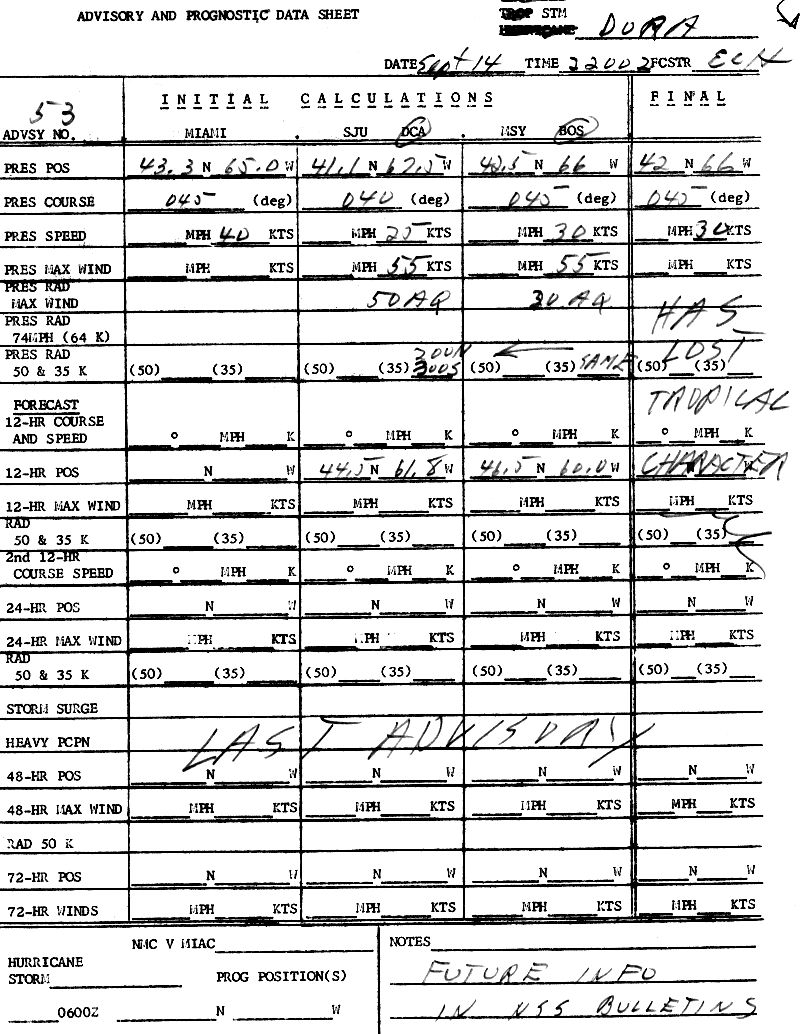 ADVISORY AND PROGNOSTIC DATA SHEET
TROP STM DORA
HURRICANE
DATE Sept 14 TIME 2200Z FCSTR ECH
53 INITIAL CALCULATIONS FINAL
ADVSY NO. MIAMI SJU DCA MSY BOS
PRES POS 43.3 N 65.0 W 41.1 N 62.5 W 42.5 N 66 W 42 N 66 W
PRES COURSE 045 (deg) 040 (deg) 045 (deg) 045 (deg)
PRES SPEED MPH 40 KTS MPH 25 KTS MPH 30 KTS MPH 30 KTS
PRES MAX WIND MPH KTS MPH 55 KTS MPH 55 KTS MPH KTS
PRES RAD
MAX WIND 50 AQ 30 AQ HAS
PRES RAD
74MPH (64 K)
PRES RAD 300N
50 & 35 K (50) (35) (50) (35) 300S (50) (35) SAME (50) (35) LOST
FORECAST TROPICAL
12-HR COURSE
AND SPEED ° MPH K ° MPH K ° MPH K ° MPH K
12-HR POS N W 44.5 N 61.8 W 46.5 N 60.0 W CHARACTER
12-HR MAX WIND MPH KTS MPH KTS MPH KTS MPH KTS
RAD
50 & 35 K (50) (35) (50) (35) (50) (35) (50) (35)
2nd 12-HR
COURSE SPEED ° MPH K ° MPH K ° MPH K ° MPH K
24-HR POS N W N W N W N W
24-HR MAX WIND MPH KTS MPH KTS MPH KTS MPH KTS
RAD
50 & 35 K (50) (35) (50) (35) (50) (35) (50) (35)
STORM SURGE
HEAVY PCPN LAST ADVISORY
48-HR POS N W N W N W N W
48-HR MAX WIND MPH KTS MPH KTS MPH KTS MPH KTS
RAD 50 K
72-HR POS N W N W N W N W
72-HR WINDS MPH KTS MPH KTS MPH KTS MPH KTS
NMC V MIAC NOTES
HURRICANE
STORM PROG POSITION(S) FUTURE INFO
0600Z N W IN NSS BULLETINS